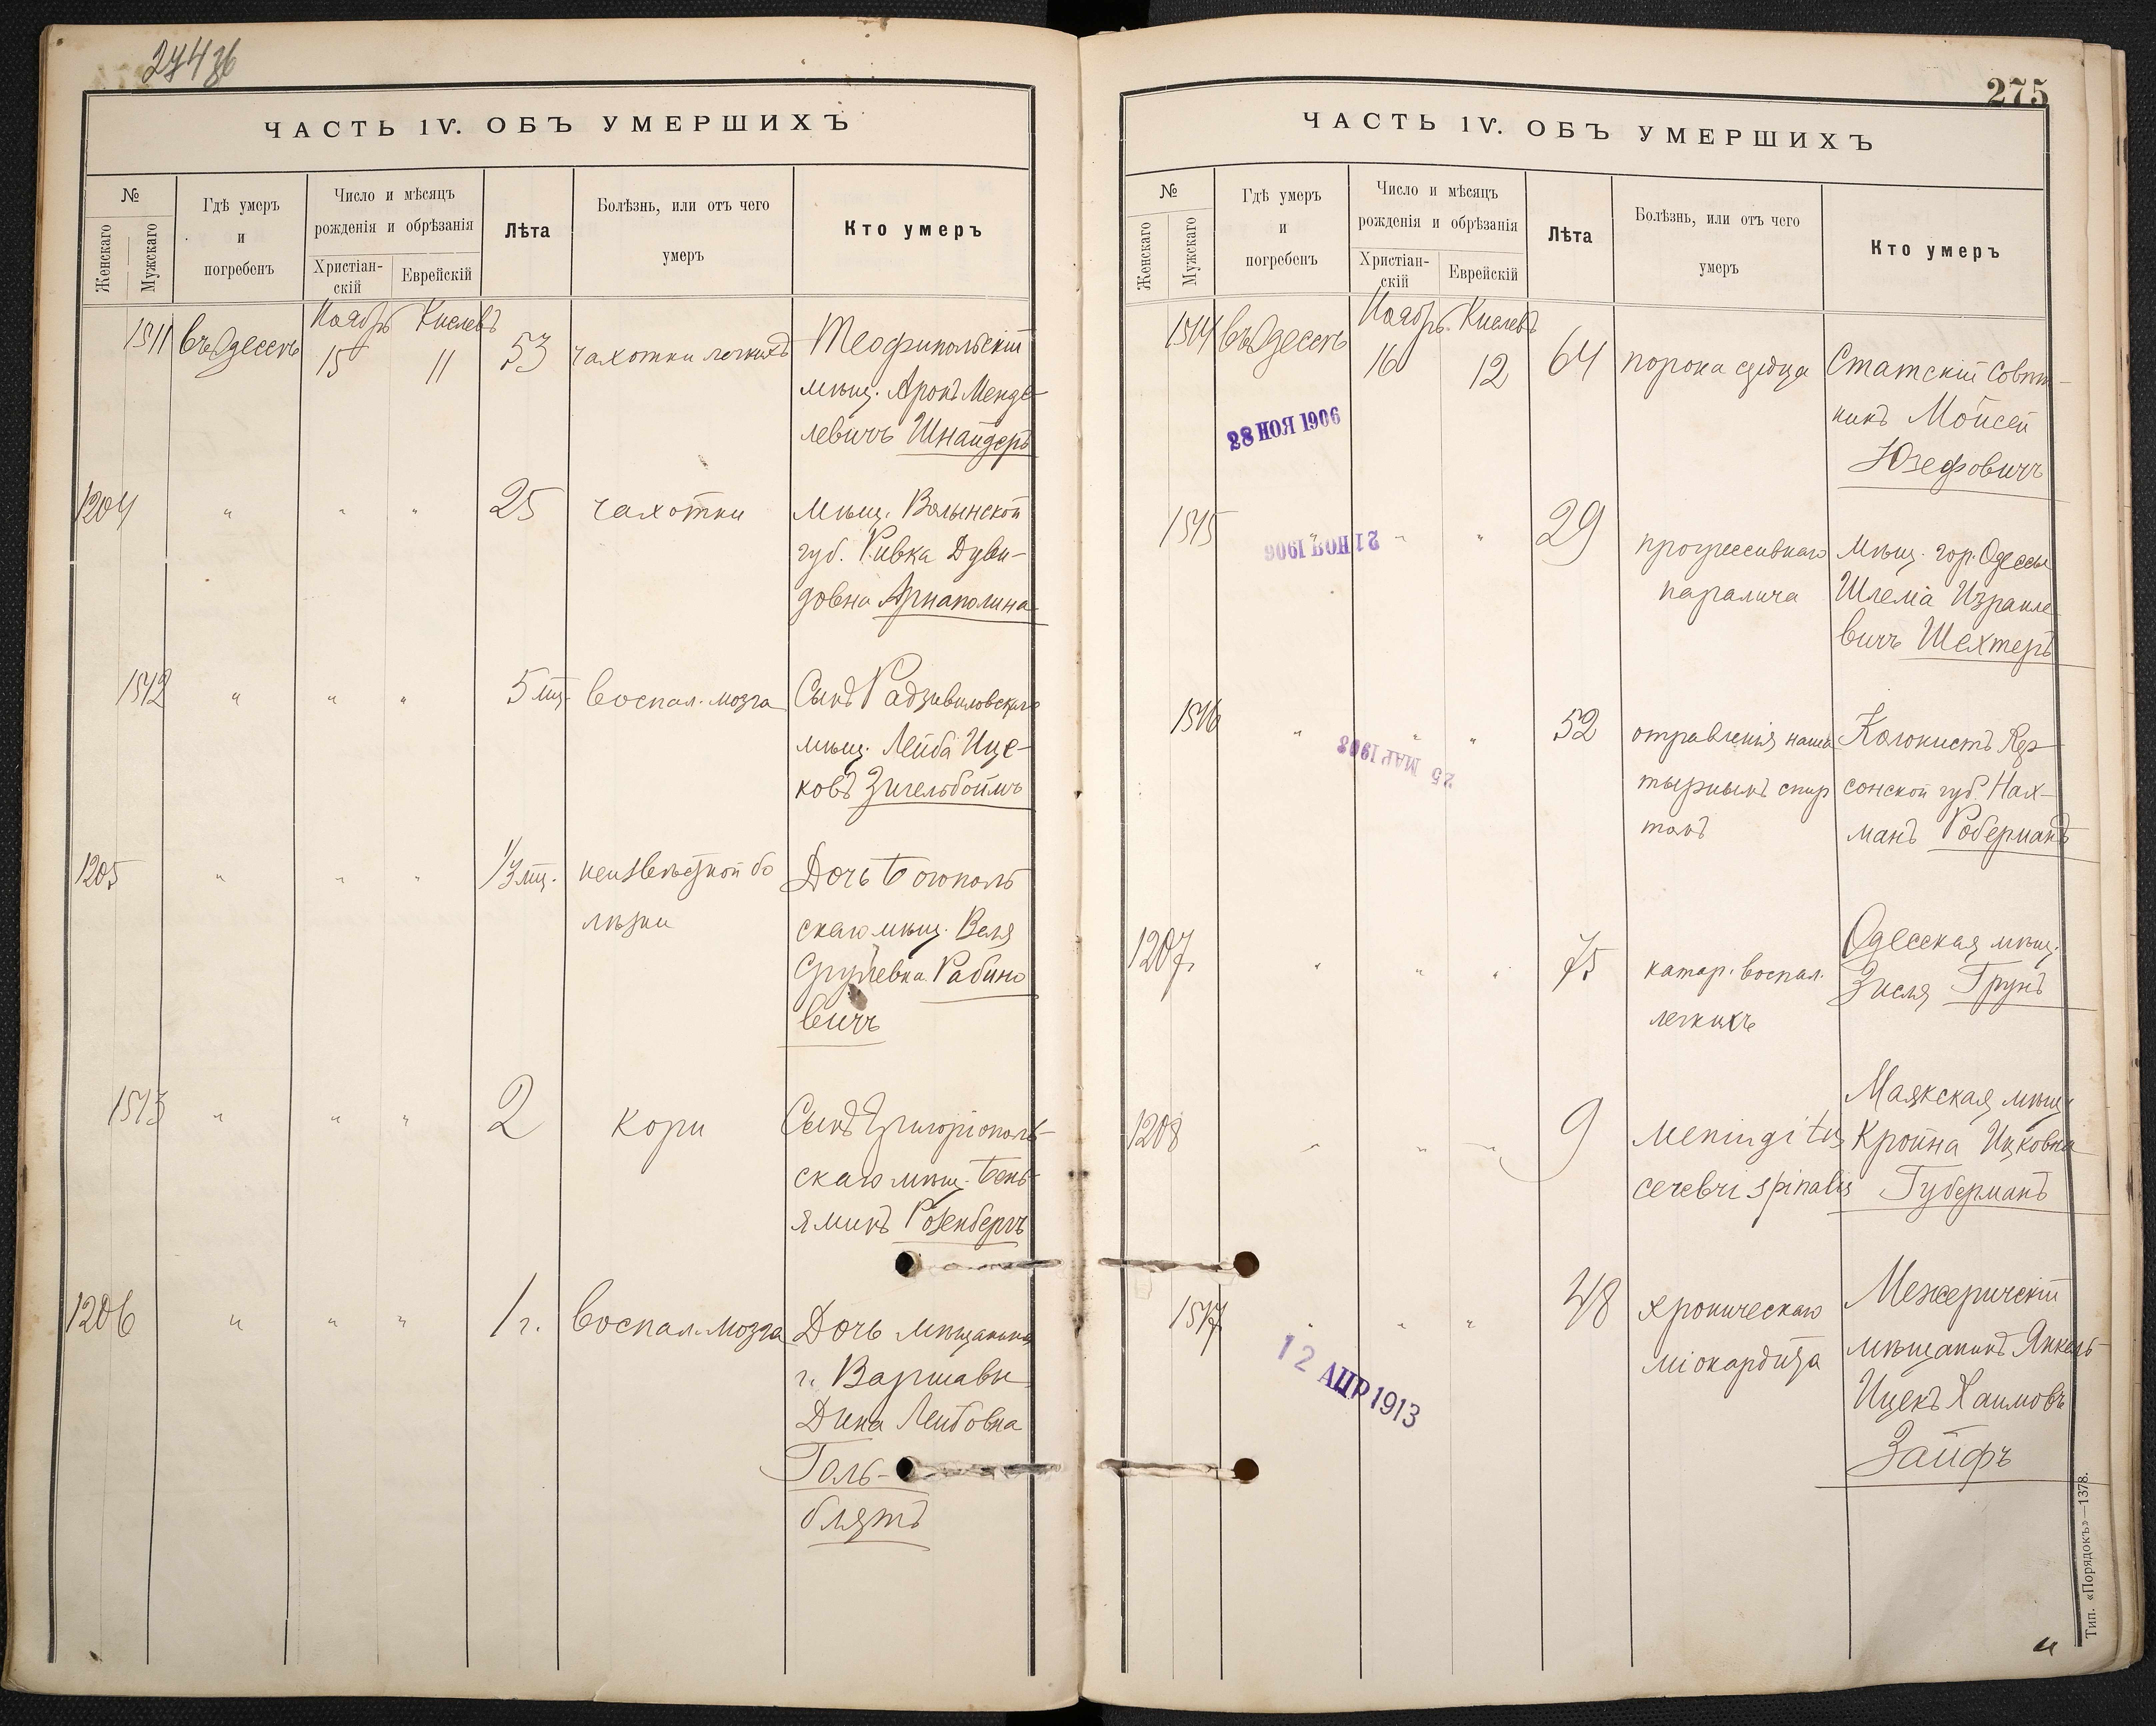 274 об
ЧАСТЬ IV. ОБЪ УМЕРШИХЪ
№
Женскаго
Мужскаго
Гдѣ умеръ
и
погребенъ
Число и мѣсяцъ
рожденія и обрѣзанія
Христіан-
скій
Еврейскій
Лѣта
Болѣзнь, или отъ чего
умеръ
Кто умеръ
Ноябрь Кислевъ
1511 въ Одессѣ 15 11 53 чахотки легкихъ Теофипольскій
мѣщ. Аронъ Менде-
левичъ Шнайдеръ
1204 " " " 25 чахотки мѣщ. Волынской
губ. Ривка Дуви-
довна
1512 " " " 5 мц. воспал. мозга Сынъ Радзивиловскаго
мѣщ. Лейба Ице-
ковъ Зигельбоймъ
1205 " " " мц. неизвѣстной бо
лѣзни
Дочь Богополь
скаго мѣщ. Веля
Срулевна Рабино
вичъ
1513 " " " 2 кори Сынъ Григоріополь-
скаго мѣщ. Бень-
яминъ Розенбергъ
1206 " " " 1 г. воспал. мозга Дочь мѣщанина
г. Варшавы
Дина Лейбовна
Голь-
блятъ
275
ЧАСТЬ IV. ОБЪ УМЕРШИХЪ
№
Женскаго
Мужскаго
Гдѣ умеръ
и
погребенъ
Число и мѣсяцъ
рожденія и обрѣзанія
Христіан-
скій
Еврейскій
Лѣта
Болѣзнь, или отъ чего
умеръ
Кто умеръ
Ноябрь Кислевъ
1514 въ Одессѣ 16 12 64 порока сердца Статскій Совѣт-
никъ Мойсей
Юзефовичъ
28 НОЯ 1906
1515 " " " 29 прогрессивнаго
паралича
Мѣщ. гор. Одессы
Шлема Израиле
вичъ Шехтеръ
21 НОЯ 1906
1516 " " " 52 отравленія наша
тырнымъ спир
томъ
Колонистъ Хер-
сонской губ. Нах-
манъ Роберманъ
25 МАР 1908
1207 " " " 75 катар. воспал.
легкихъ
Одесская мѣщ.
Зисля Грунъ
1208 " " " 9 Meningitis
cerebri spinalis
Маякская мѣщ.
Кройна Ицковна
Губерманъ
1517 " " " 48 хроническаго
міокардита
Межеричскій
мѣщанинъ Янкель-
Ицекъ Хаимовъ
Зайфъ
12 АПР 1913
Тип. «Порядокъ»—1378.